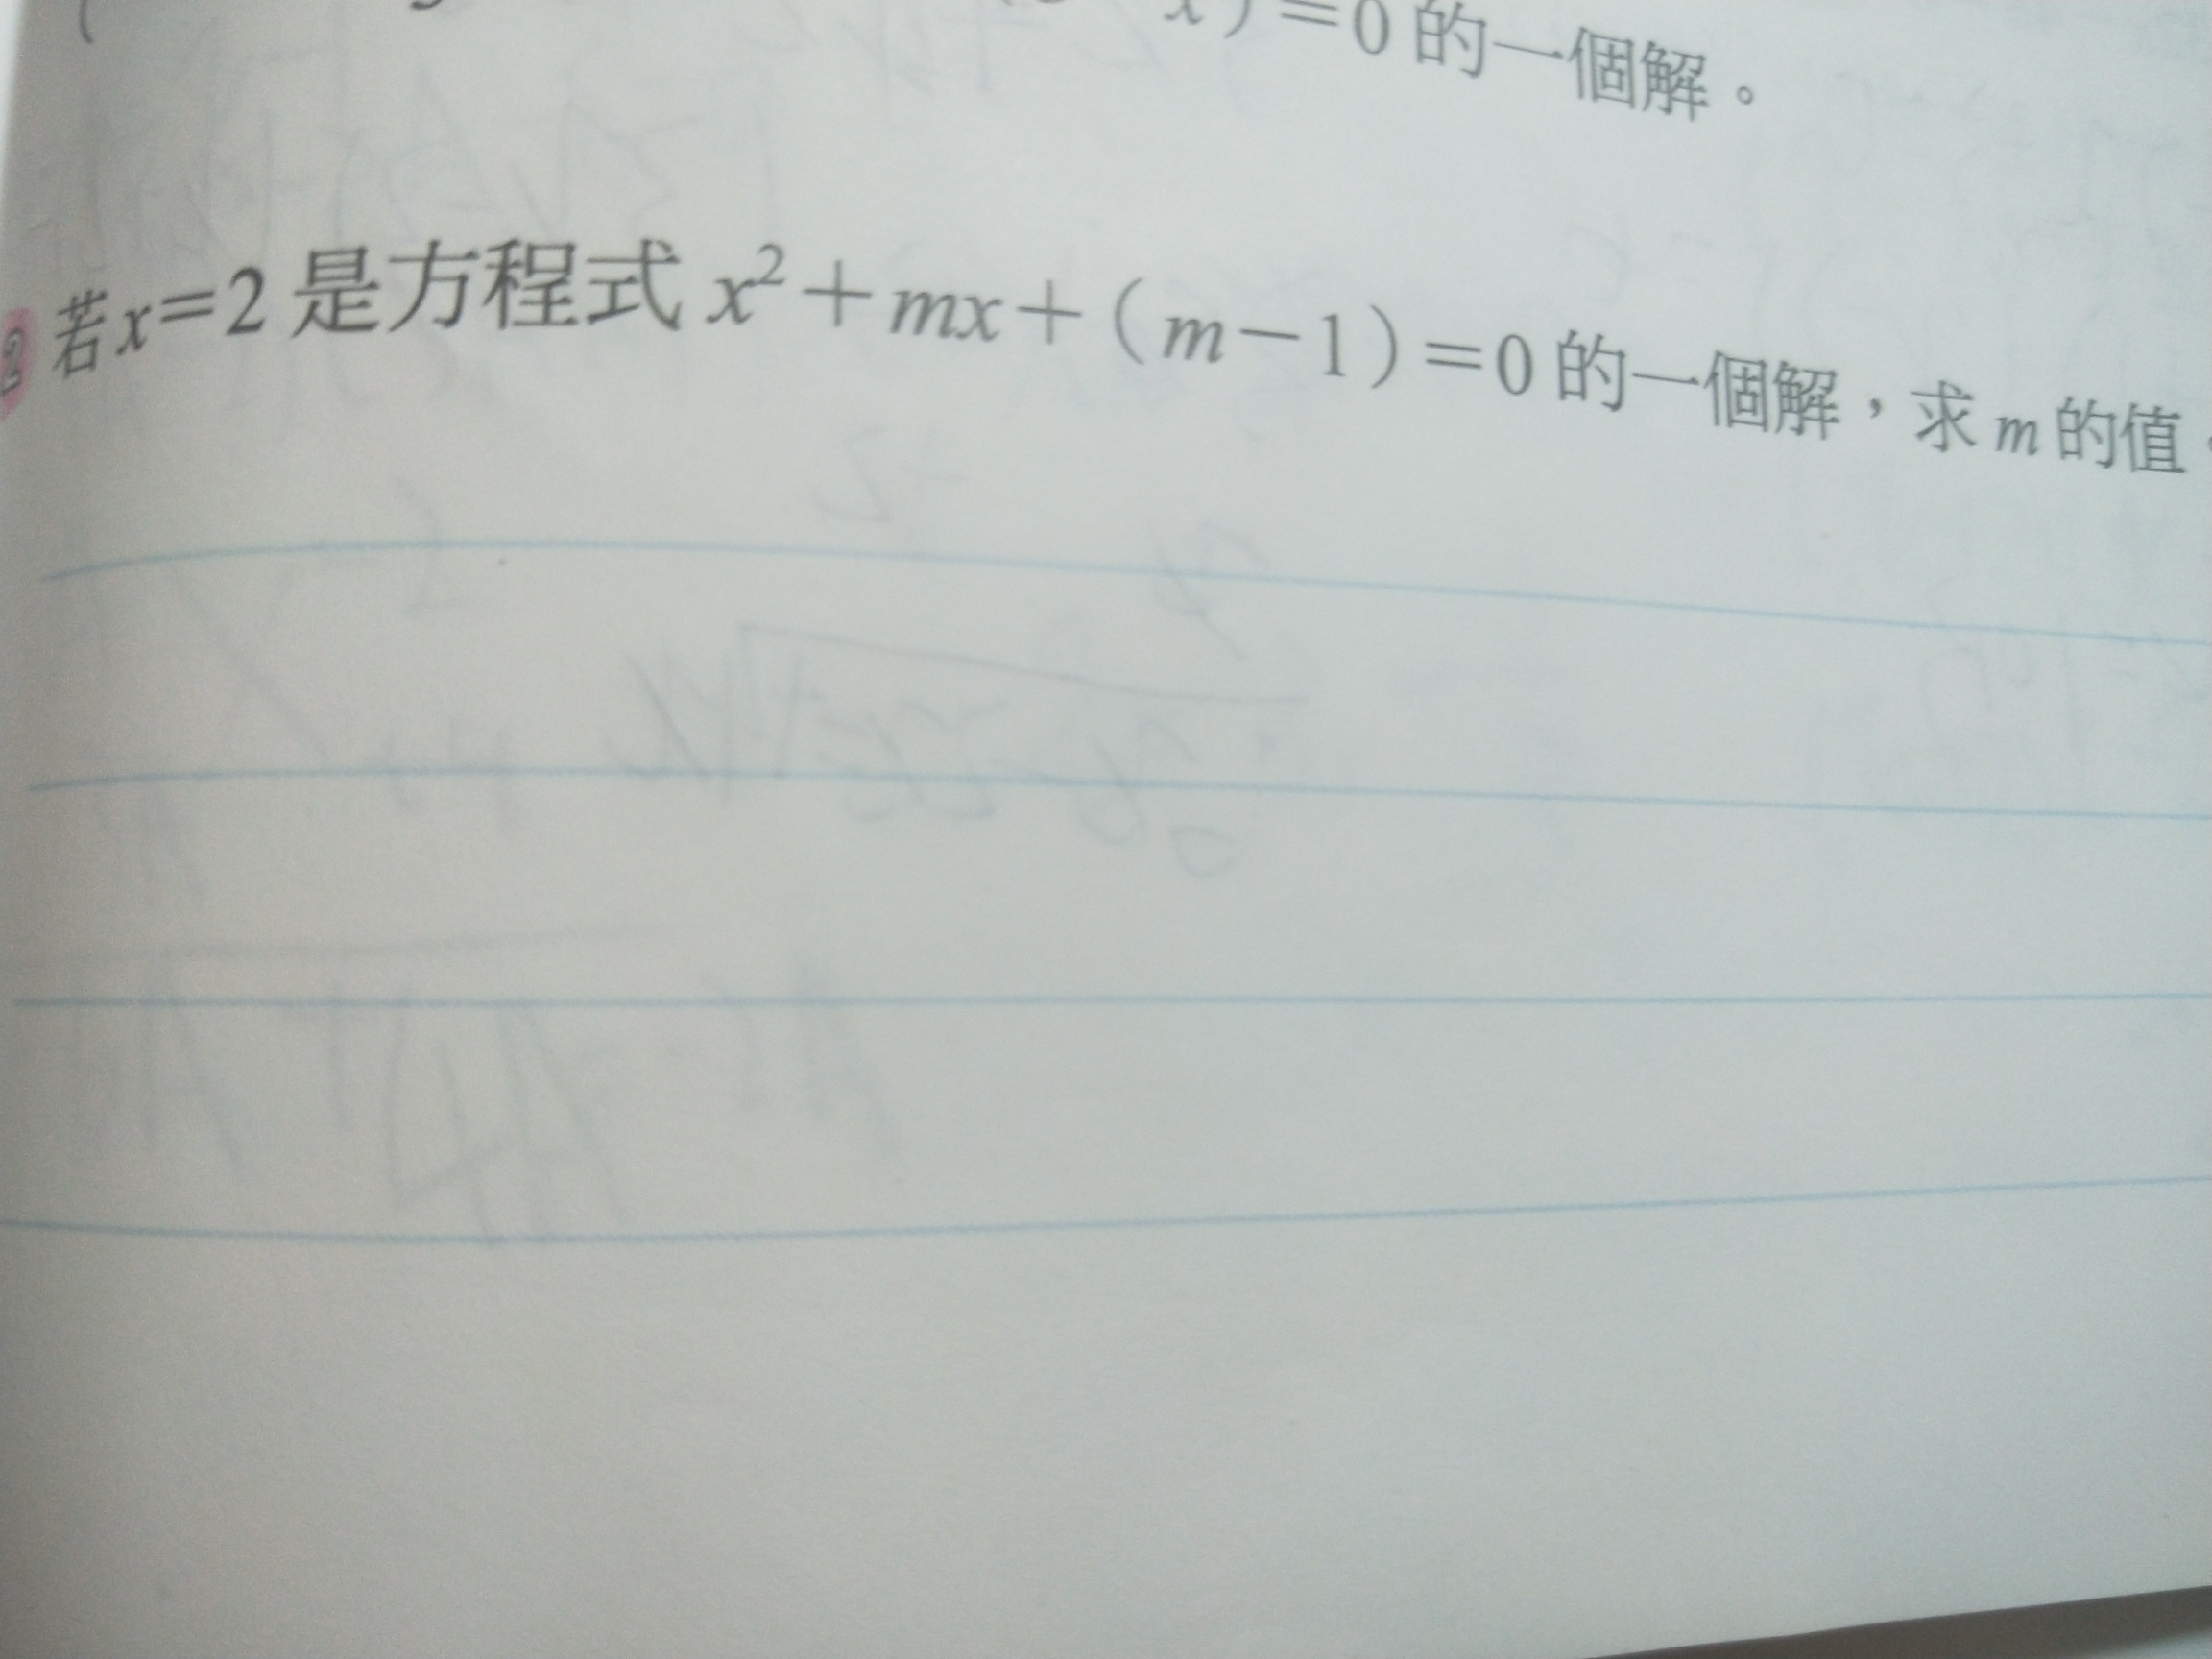 x)=0的一個解。
2 若x=2是方程式 x²+mx+(m-1)=0的一個解,求m的值